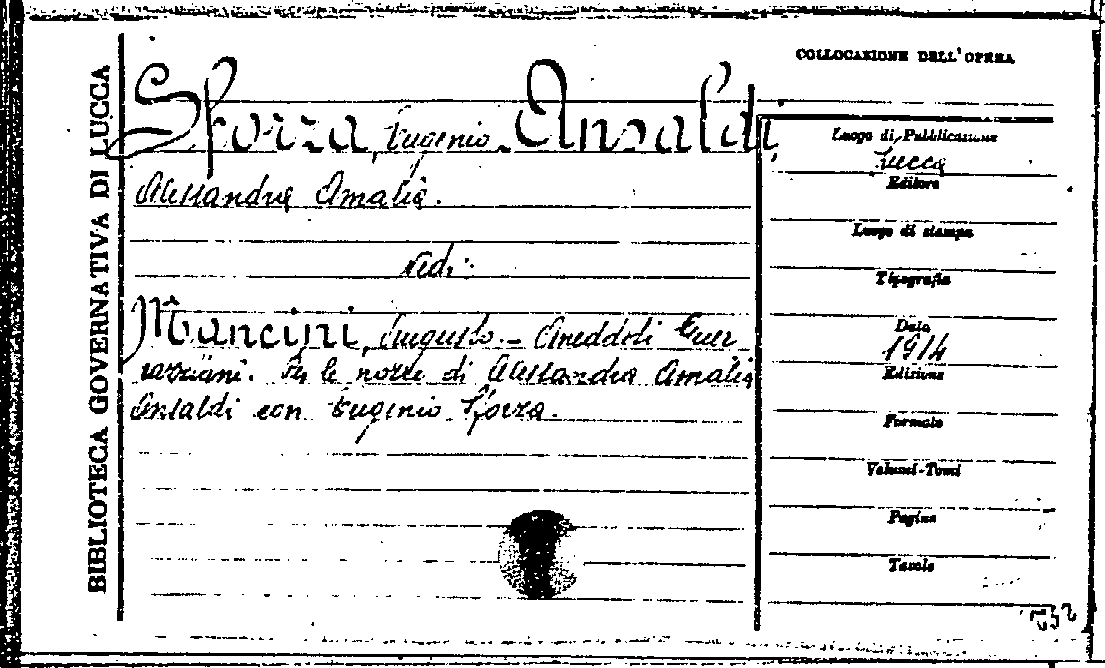 BIBLIOTECA GOVERNATIVA DI LUCCA
COLLOCAZIONE DELL'OPERA
Sforza, Eugenio. Ansaldi,
Alessandra Amalia.
Vedi:
Mancini, Augusto - Aneddoti Guer
razziani. Per le nozze di Alessandra Amalia
Ansaldi con Eugenio Sforza.
Luogo di Pubblicazione
Lucca
Editore
Luogo di stampa
Tipografia
Data
1914
Edizione
Formato
Volumi-Tomi
Pagine
Tavole